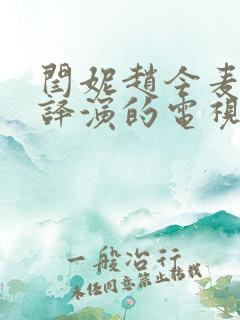 閆妮趙今麦
譯演的電視
一般冶行
未经同意禁止转载